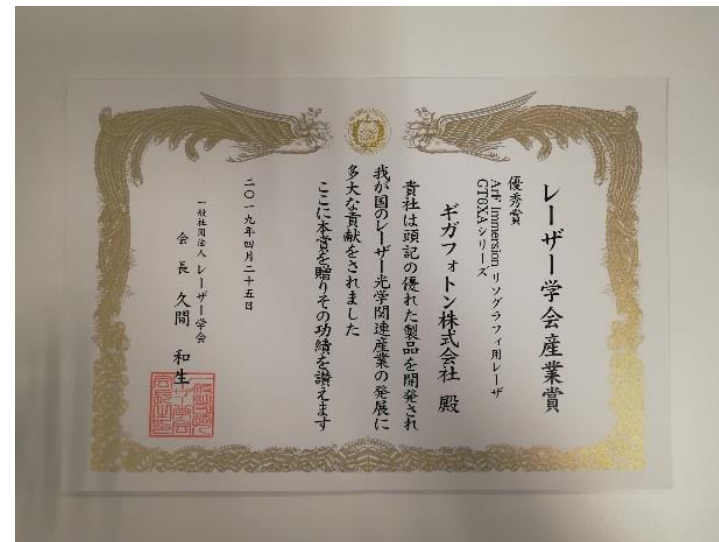 レーザー学会産業賞
優秀賞
ArF Immersion リソグラフィ用レーザ
GT6XAシリーズ
ギガフォトン株式会社 殿
貴社は頭記の優れた製品を開発され
我が国のレーザー光学関連産業の発展に
多大な貢献をされました
ここに本賞を贈りその功績を讃えます
二〇一九年四月二十五日
一般社団法人 レーザー学会
会長 久間 和生